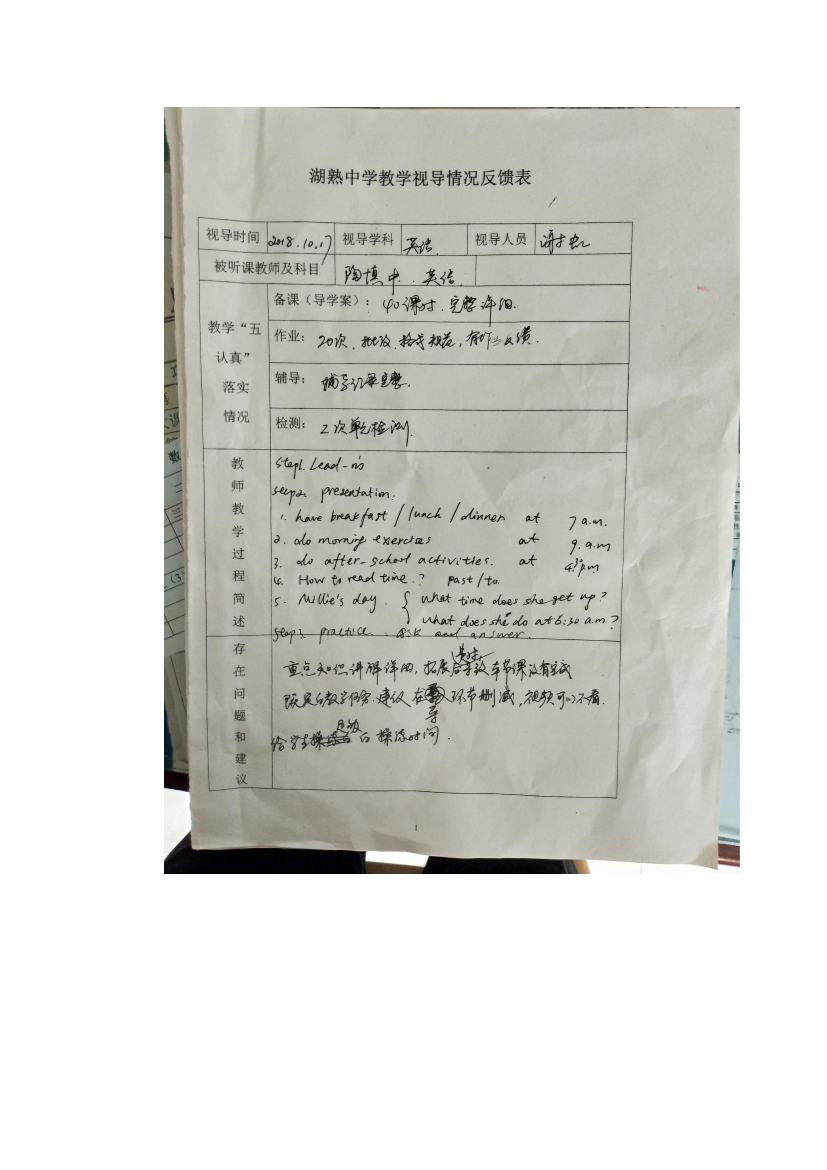 湖熟中学教学视导情况反馈表
视导时间 2018.10.17 视导学科 英语 视导人员
被听课教师及科目 陶慎中 英语
教学“五认真”落实情况
备课（导学案）：40课时、完整详细.
作业：20次、批改、格式规范，有作业反馈.
辅导：辅导记录完整.
检测：2次单元检测.
教师教学过程简述
step1. Lead-in
step2. presentation:
1. have breakfast / lunch / dinner at 7 a.m.
2. do morning exercises at 9.a.m
3. do after-school activities. at 4:30 pm
4. How to read time.? past / to.
5. Millie's day. { what time does she get up?
what does she do at 6:30 a.m?
step3. practice: ask and answer.
存在问题和建议
重点知识讲解详细，拓展 导致本节课没有完成
既定的教学任务.建议在导入环节删减，视频可以不看.
给学生足够的操练时间.
1